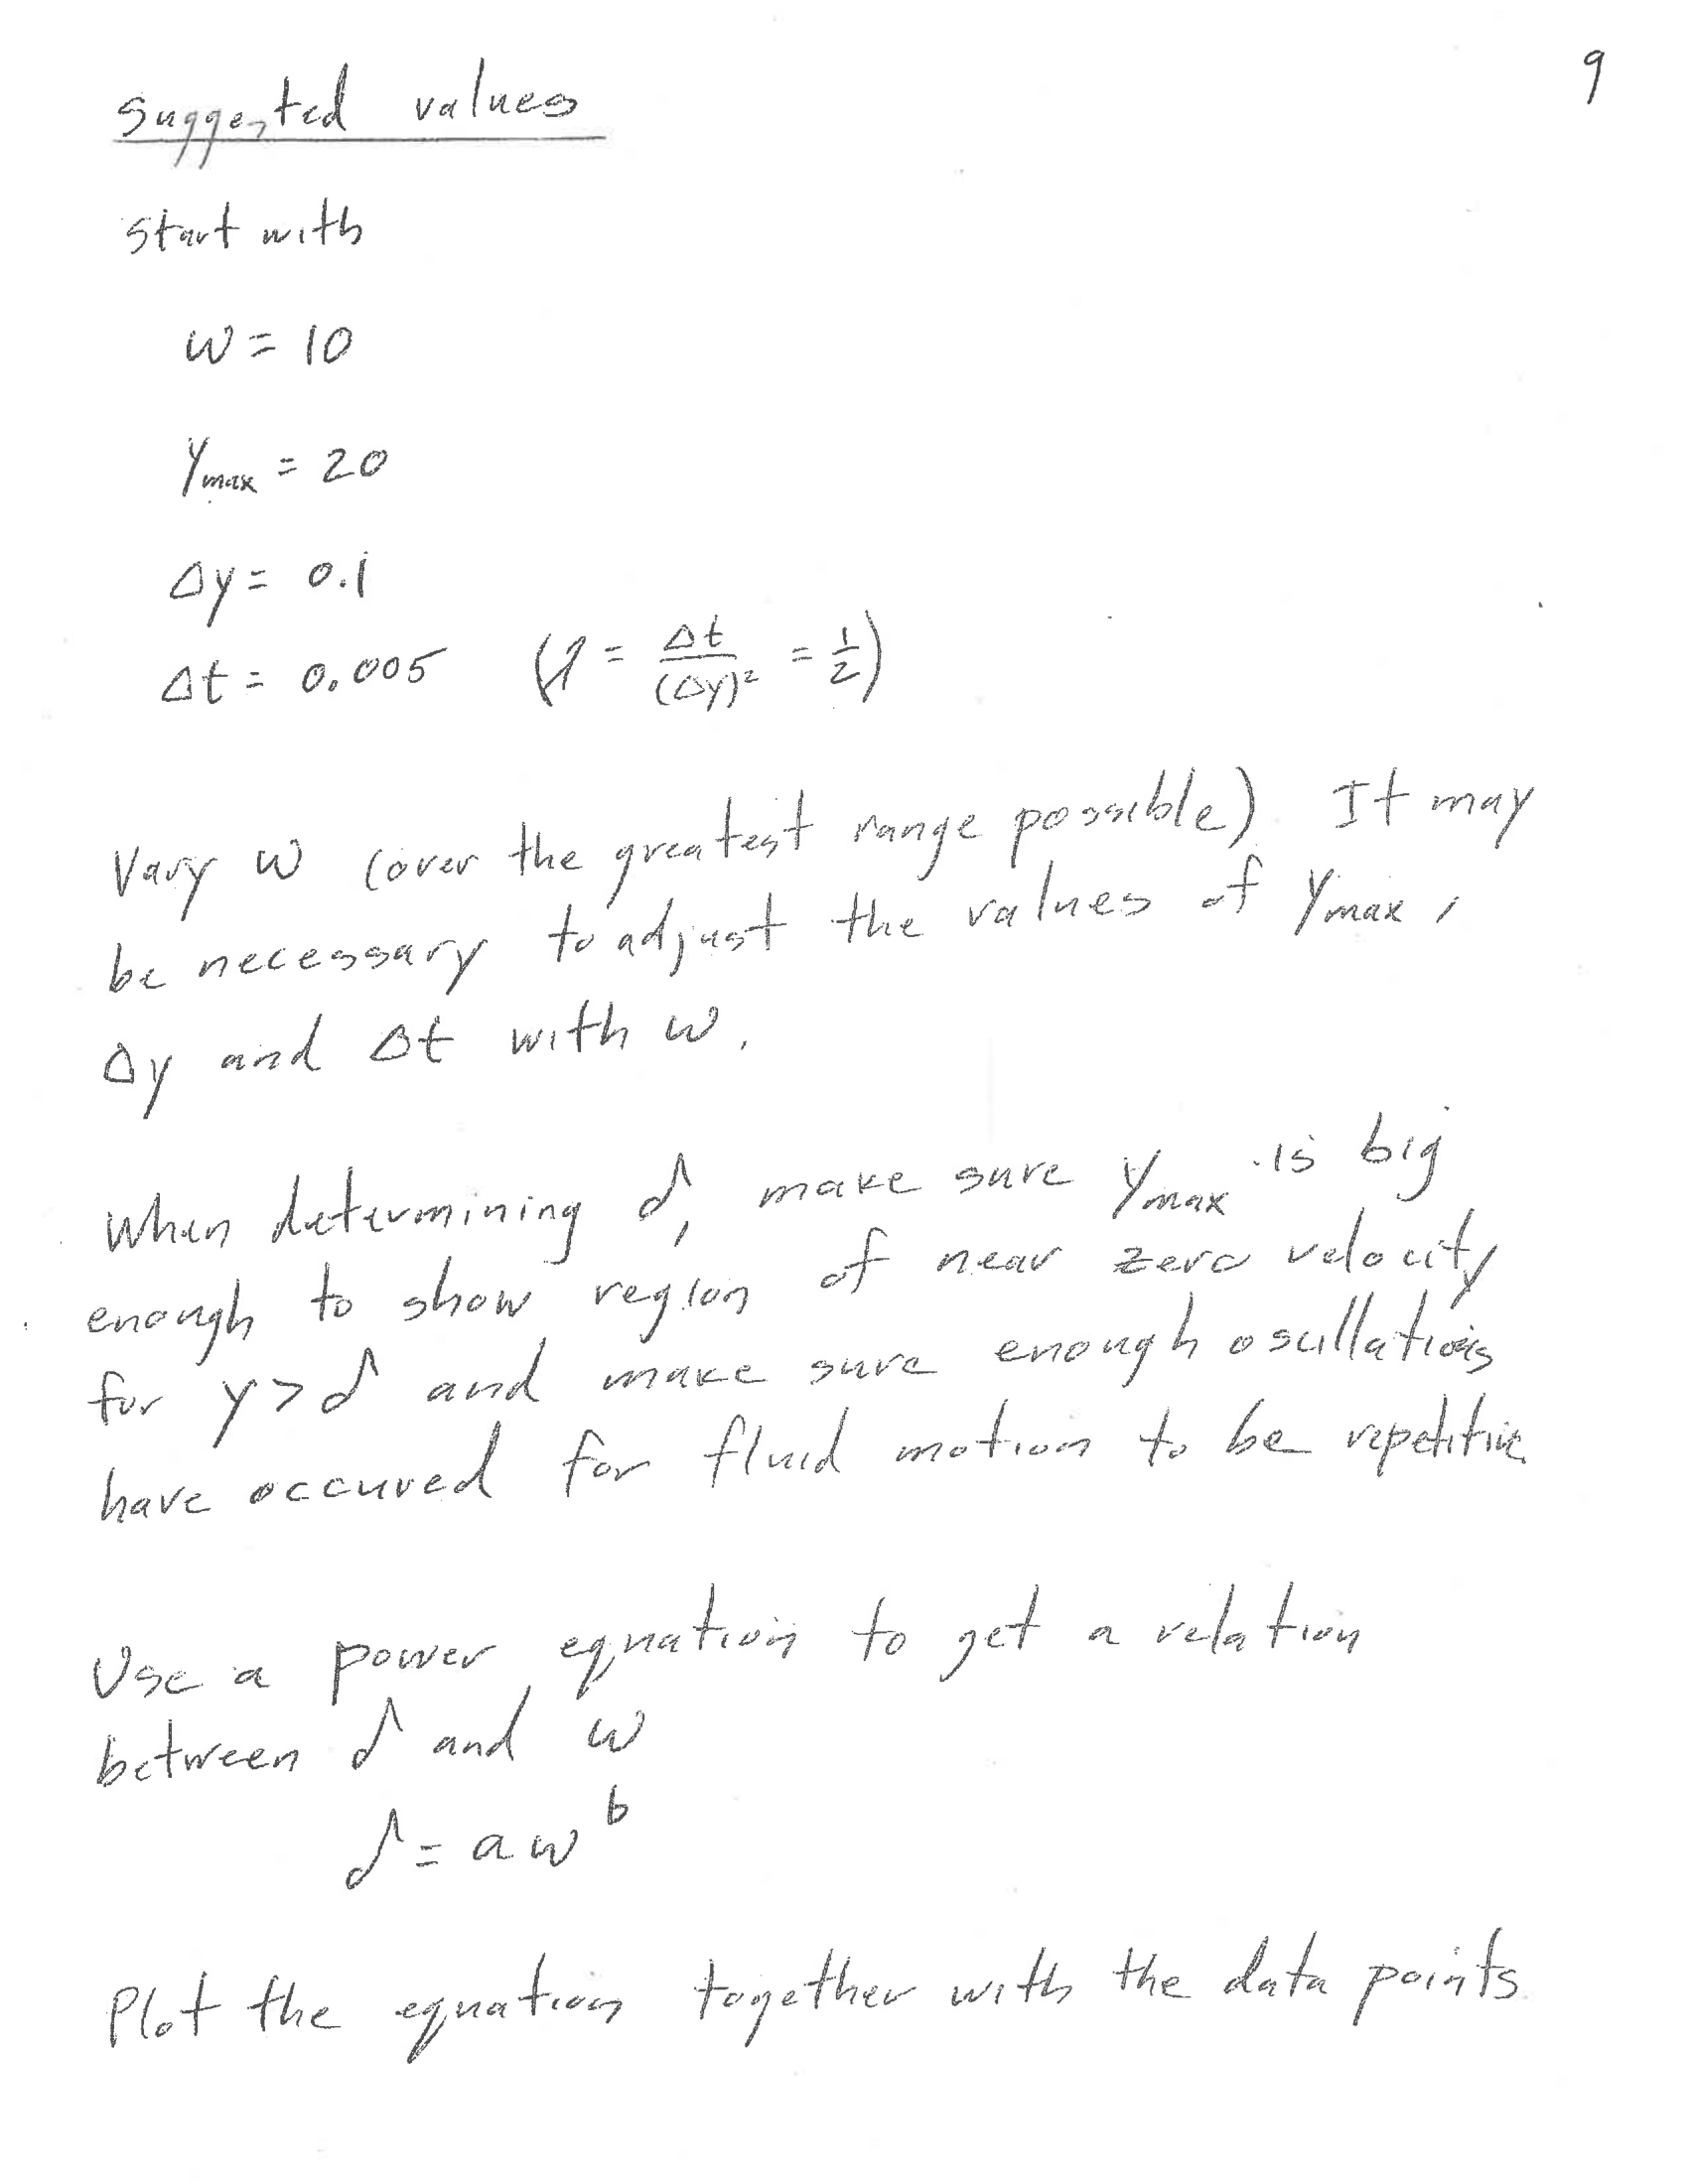 9
Suggested values
Start with
w = 10
Ymax = 20
Δy = 0.1
Δt = 0.005 (λ = Δt/(Δy)² = 1/2)
Vary w (over the greatest range possible) It may
be necessary to adjust the values of Ymax,
Δy and Δt with w.
When determining δ, make sure Ymax is big
enough to show region of near zero velocity
for y > δ and make sure enough oscillations
have occured for fluid motion to be repetitive
Use a power equation to get a relation
between δ and w
δ = a w^b
Plot the equation together with the data points